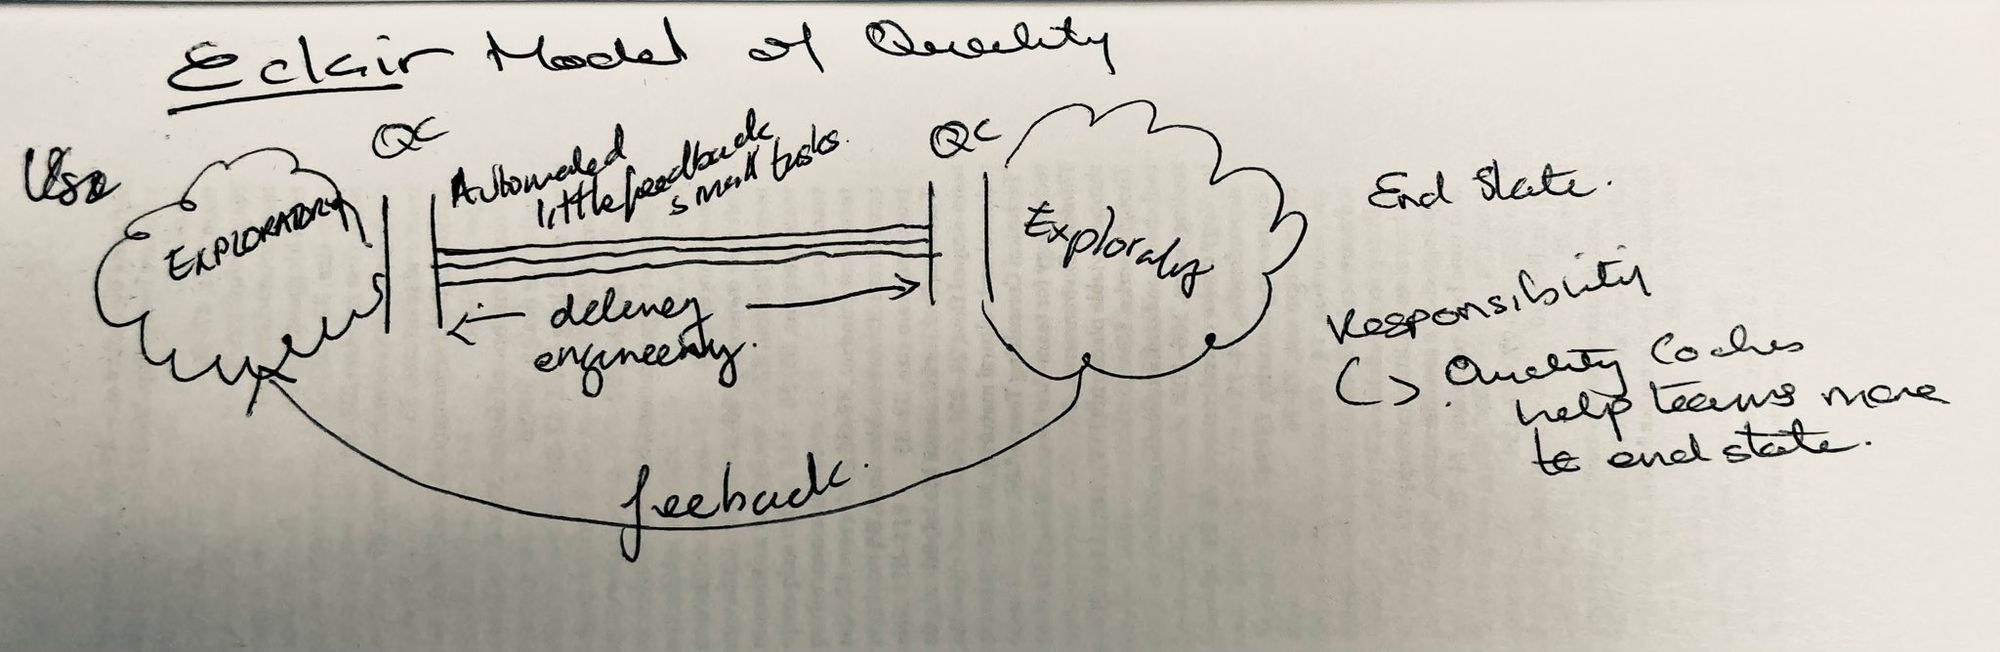 Eclair Model of Quality
Use
EXPLORATORY
QC
Automated
little feedback
small tasks.
QC
Exploratory
End State.
← delivery →
engineering.
Responsibility
↳ Quality Coaches
help teams move
to end state.
feeback.